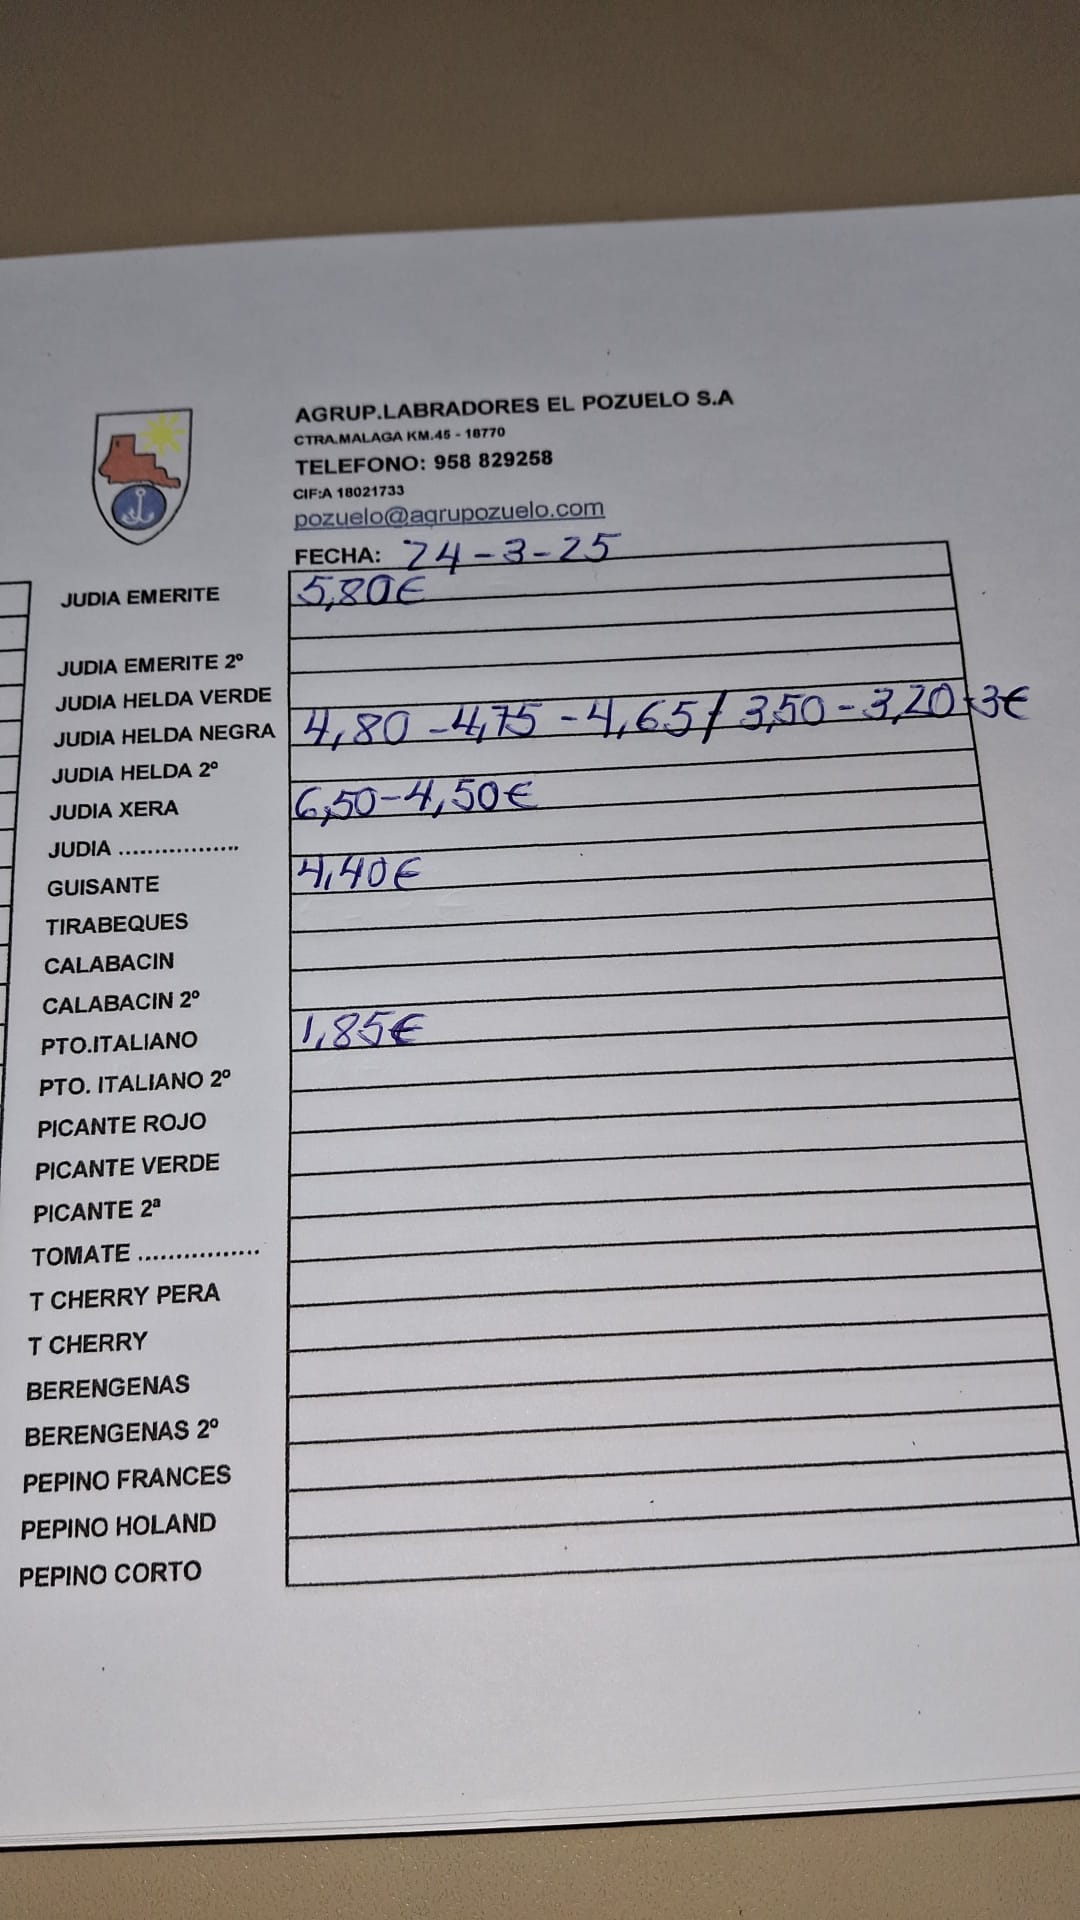 AGRUP.LABRADORES EL POZUELO S.A
CTRA.MALAGA KM.45 - 18770
TELEFONO: 958 829258
CIF:A 18021733
pozuelo@agrupozuelo.com
FECHA: 24-3-25
JUDIA EMERITE 5,80€
JUDIA EMERITE 2º
JUDIA HELDA VERDE
JUDIA HELDA NEGRA 4,80 - 4,75 - 4,65 / 3,50 - 3,20 - 3€
JUDIA HELDA 2º
JUDIA XERA 6,50-4,50€
JUDIA .................
GUISANTE 4,40€
TIRABEQUES
CALABACIN
CALABACIN 2º
PTO.ITALIANO 1,85€
PTO. ITALIANO 2º
PICANTE ROJO
PICANTE VERDE
PICANTE 2ª
TOMATE ................
T CHERRY PERA
T CHERRY
BERENGENAS
BERENGENAS 2º
PEPINO FRANCES
PEPINO HOLAND
PEPINO CORTO